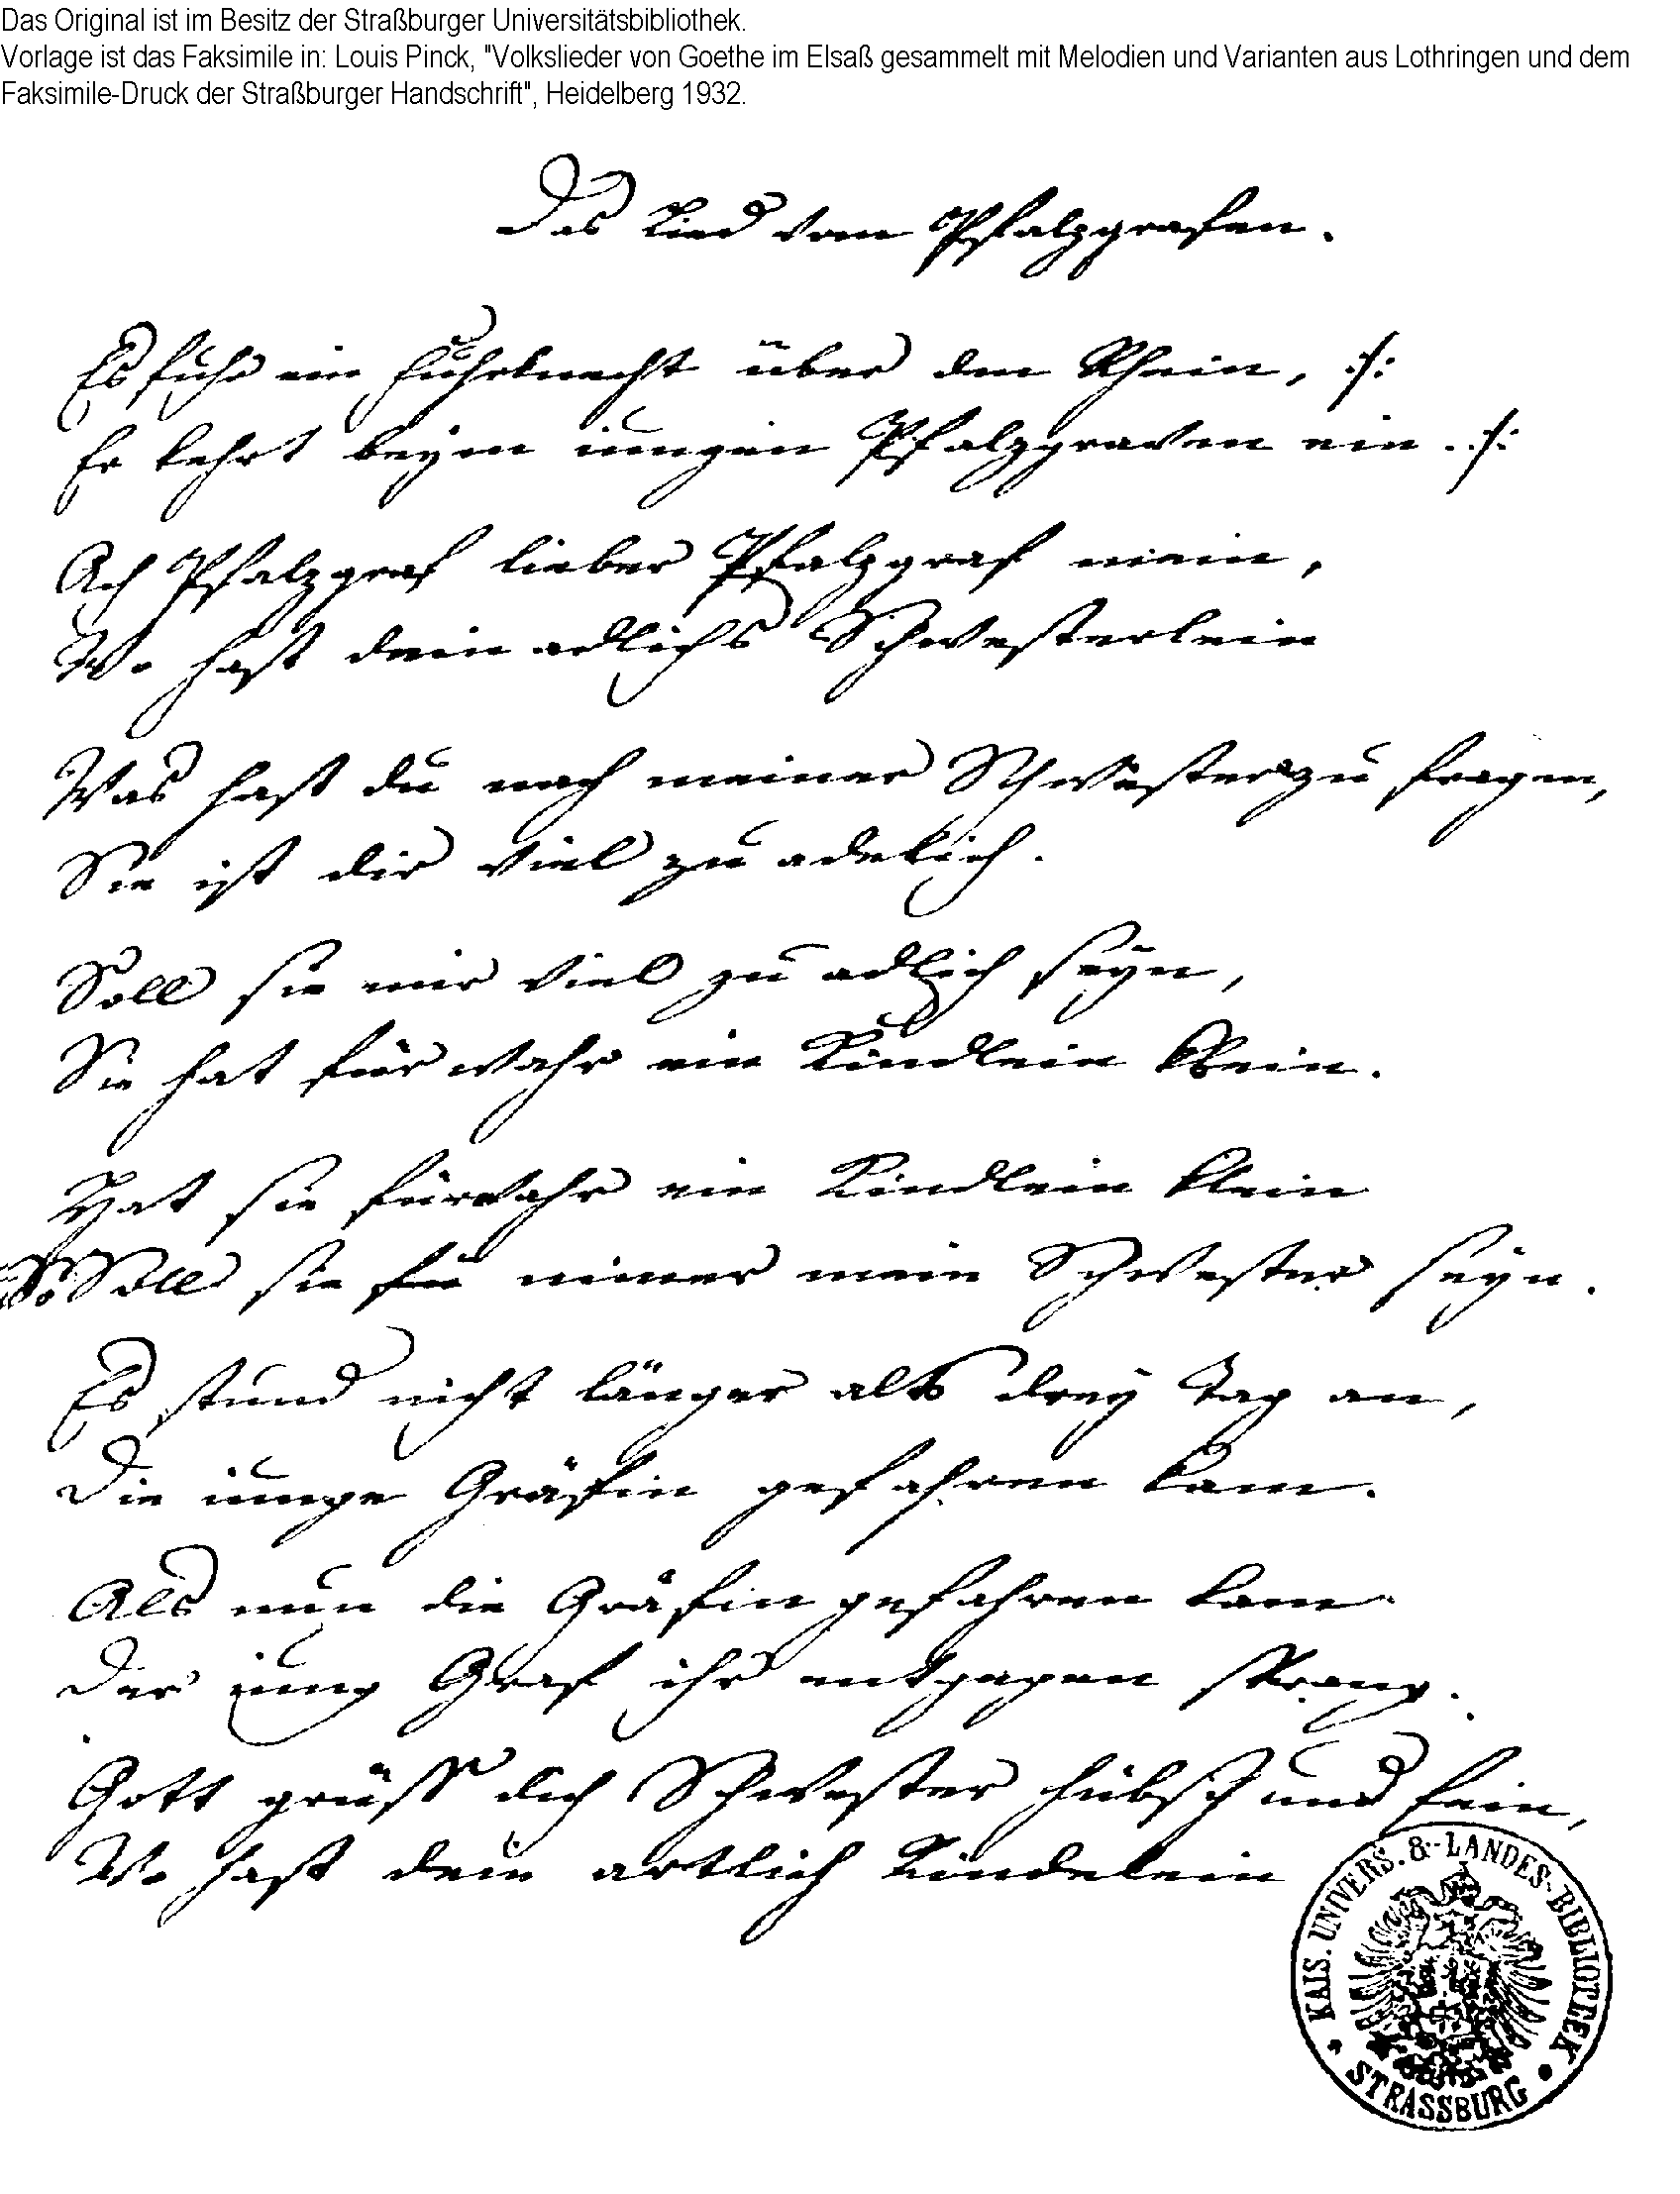 Das Original ist im Besitz der Straßburger Universitätsbibliothek.
Vorlage ist das Faksimile in: Louis Pinck, "Volkslieder von Goethe im Elsaß gesammelt mit Melodien und Varianten aus Lothringen und dem
Faksimile-Druck der Straßburger Handschrift", Heidelberg 1932.
Das Lied vom Pfalzgrafen.
Es fuhr ein Fuhrknecht über den Rhein, :/:
Er kehrt beym iungen Pfalzgraven ein. :/:
Ach Pfalzgraf lieber Pfalzgraf mein,
Wo hast dein adlichs Schwesterlein
Was hast du nach meiner Schwester zu fragen,
Sie ist dir viel zu adelich.
Soll sie mir viel zu adlich seyn,
Sie hat fürwahr ein Kindlein klein.
Hat sie fürwahr ein Kindlein klein
So Soll sie nimer mein Schwester seyn.
Es stund nicht länger als drey Tag an,
Die iunge Gräfin gefahren kam.
Als nun die Gräfin gefahren kam
Der iung Graf ihr entgegen sprang.
Gott grüss dich Schwester hübsch und fein,
Wo hast dein artlich Kindelein
KAIS. UNIVERS. & LANDES-BIBLIOTEK
STRASSBURG